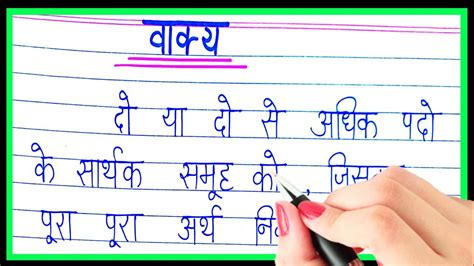 वाक्य
दो या दो से अधिक पदो
के सार्थक समूह को,
पूरा पूरा अर्थ